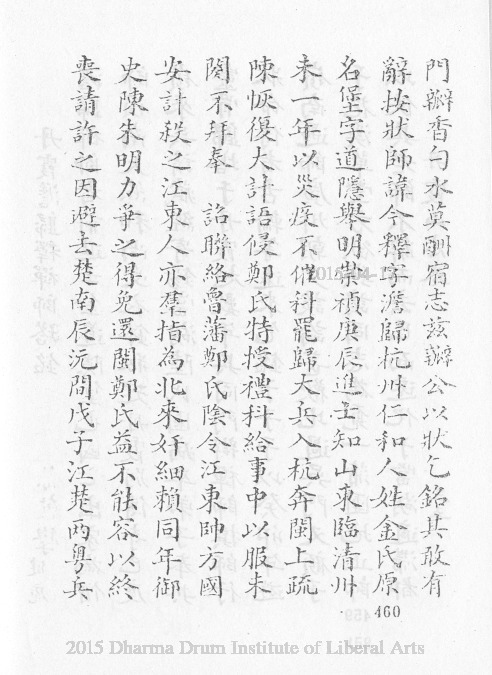 門瓣香勺水莫酬宿志兹辦公以狀乞銘其敢有
辭按狀師諱今釋字澹歸杭州仁和人姓金氏原
名堡字道隱舉明崇禎庚辰進士知山東臨清州
未一年以災疫不催科罷歸天兵入杭奔閩上疏
陳恢復大計語侵鄭氏特授禮科給事中以服未
闋不拜奉 詔聯絡魯藩鄭氏陰令江東帥方國
安計殺之江東人亦羣指為北來奸細賴同年御
史陳朱明力爭之得免還閩鄭氏益不能容以終
喪請許之因避去楚南辰沅間戊子江楚兩粵兵
460
2015 Dharma Drum Institute of Liberal Arts